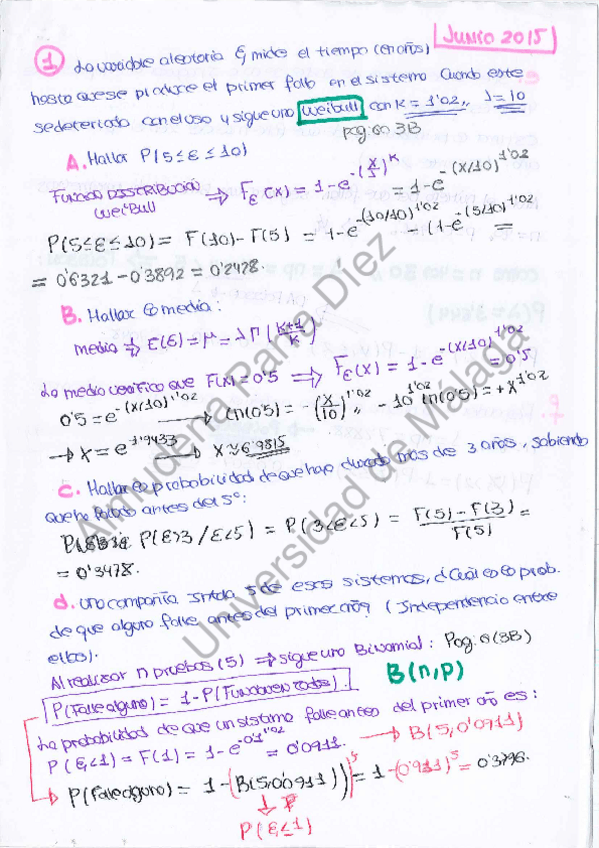 JUNIO 2015
1 La variable aleatoria ξ, mide el tiempo (en años)
hasta que se produce el primer fallo en el sistema cuando este
se deteriora con el uso y sigue una Weibull con K = 1'02,, λ = 10
pag: 60 3B
A. Hallar P(5≤ε≤10)
FUNCIÓN DISTRIBUCIÓN WEIBULL ⇒ Fε(x) = 1-e^-(x/λ)^K = 1-e^-(x/10)^1'02
P(5≤ε≤10) = F(10)-F(5) = 1-e^-(10/10)^1'02 - (1-e^-(5/10)^1'02) =
= 0'6321-0'3892 = 0'2428.
B. Hallar la media:
media ⇒ E(ε) = μ = λ Γ(K+1/K)
La media verifica que F(x)=0'5 ⇒ Fε(x) = 1-e^-(x/10)^1'02 = 0'5
0'5 = e^-(x/10)^1'02 → ln(0'5) = -(x/10)^1'02,, -10^1'02 ln(0'5) = +x^1'02
→ x = e^1'9433 → x ≈ 6'9815
C. Hallar la probabilidad de que haya durado más de 3 años, sabiendo
que ha fallado antes del 5º:
P(ε>3/ε<5) = P(3<ε<5) = F(5)-F(3)/F(5) =
= 0'3478.
d. Una compañía instala 5 de esos sistemas, ¿Cuál es la prob.
de que alguno falle antes del primer año? (Independencia entre
ellos).
Al realizar n pruebas (5) ⇒ sigue una Binomial: Pag: 8(3B)
B(n,p)
P(Falle alguno) = 1-P(Funcionen todos).
La probabilidad de que un sistema falle antes del primer año es:
P(ξ<1) = F(1) = 1-e^-0'1^1'02 = 0'0911. → B(5, 0'0911)
P(Falle alguno) = 1-(B(5, 0'0911))^5 = 1-(0'911)^5 = 0'3796.
P(ξ≤1)
Almudena Parra Díez
Universidad de Málaga